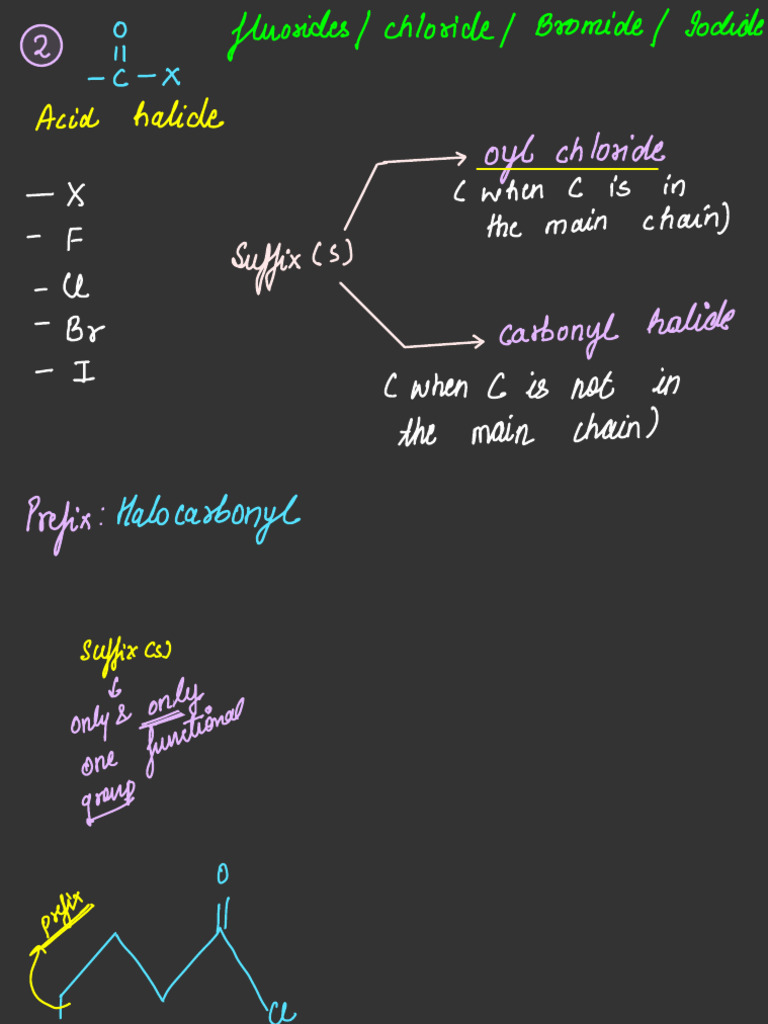 fluorides / chloride / Bromide / Iodide
②
O
|| 
- C - X
Acid halide
oyl chloride
( when C is in
the main chain)
- X
- F
- Cl
- Br
- I
Suffix (s)
carbonyl halide
( when C is not in
the main chain)
Prefix: Halocarbonyl
Suffix (s)
↓
only & only
one functional
group
prefix
O
Cl